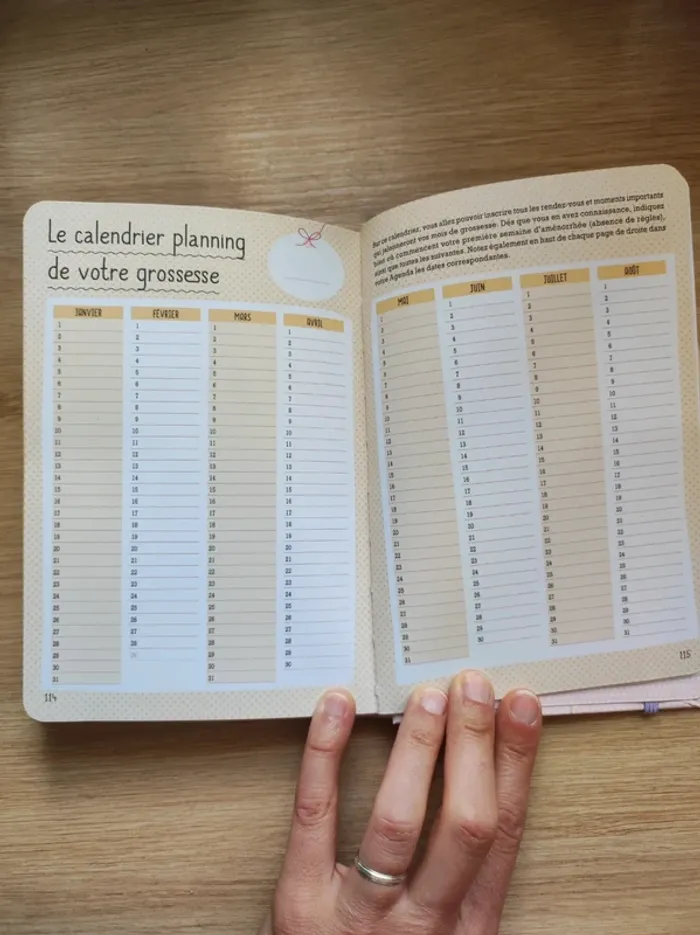 Le calendrier planning
de votre grossesse
JANVIER FÉVRIER MARS AVRIL
1 1 1 1
2 2 2 2
3 3 3 3
4 4 4 4
5 5 5 5
6 6 6 6
7 7 7 7
8 8 8 8
9 9 9 9
10 10 10 10
11 11 11 11
12 12 12 12
13 13 13 13
14 14 14 14
15 15 15 15
16 16 16 16
17 17 17 17
18 18 18 18
19 19 19 19
20 20 20 20
21 21 21 21
22 22 22 22
23 23 23 23
24 24 24 24
25 25 25 25
26 26 26 26
27 27 27 27
28 28 28 28
29 29 29 29
30 30 30
31 31
114
Sur ce calendrier, vous allez pouvoir inscrire tous les rendez-vous et moments importants
qui jalonneront vos mois de grossesse. Dès que vous en avez connaissance, indiquez
bien où commencent votre première semaine d'aménorrhée (absence de règles),
ainsi que toutes les suivantes. Notez également en haut de chaque page de droite dans
votre Agenda les dates correspondantes.
MAI JUIN JUILLET AOÛT
1 1 1 1
2 2 2 2
3 3 3 3
4 4 4 4
5 5 5 5
6 6 6 6
7 7 7 7
8 8 8 8
9 9 9 9
10 10 10 10
11 11 11 11
12 12 12 12
13 13 13 13
14 14 14 14
15 15 15 15
16 16 16 16
17 17 17 17
18 18 18 18
19 19 19 19
20 20 20 20
21 21 21 21
22 22 22 22
23 23 23 23
24 24 24 24
25 25 25 25
26 26 26 26
27 27 27 27
28 28 28 28
29 29 29 29
30 30 30 30
31 31 31
115